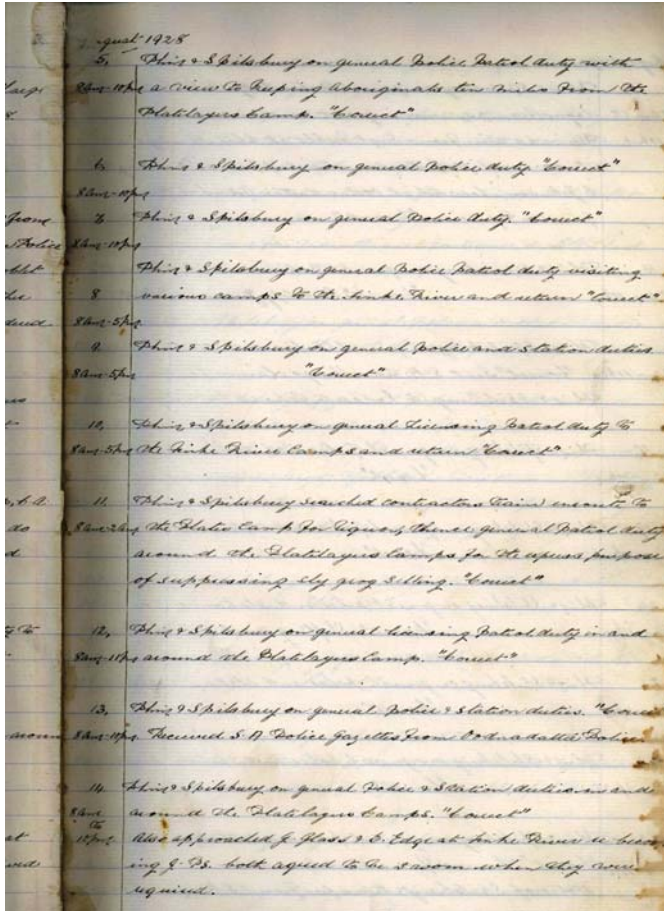 August 1928
5. Phin & Spilsbury on general Police Patrol duty with
8am-10pm a view to keeping aboriginals ten miles from the
Platelayers Camp. "Correct"
6. Phin & Spilsbury on general Police duty. "Correct"
8am-10pm
7. Phin & Spilsbury on general Police duty. "Correct"
8am-10pm
Phin & Spilsbury on general Police Patrol duty visiting
8. various camps to the Finke River and return "Correct"
8am-5pm
9. Phin & Spilsbury on general Police and Station duties
8am-5pm "Correct"
10. Phin & Spilsbury on general Licensing Patrol duty to
8am-5pm the Finke River Camps and return "Correct"
11. Phin & Spilsbury searched contractors train enroute to
8am-2am the Plate Camp for liquor, thence general Patrol duty
around the Platelayers Camps for the express purpose
of suppressing sly grog selling. "Correct"
12. Phin & Spilsbury on general licensing Patrol duty in and
8am-11pm around the Platelayers Camp. "Correct"
13. Phin & Spilsbury on general Police & Station duties. "Correct
8am-11pm Received S.A Police Gazettes from Oodnadatta Police
14. Phin & Spilsbury on general Police & Station duties in and
8am around the Platelayers Camps. "Correct"
to
10pm Also approached J. Glass & E. Edge at Finke River re becom
ing J. Ps. both agreed to be sworn when they were
required.